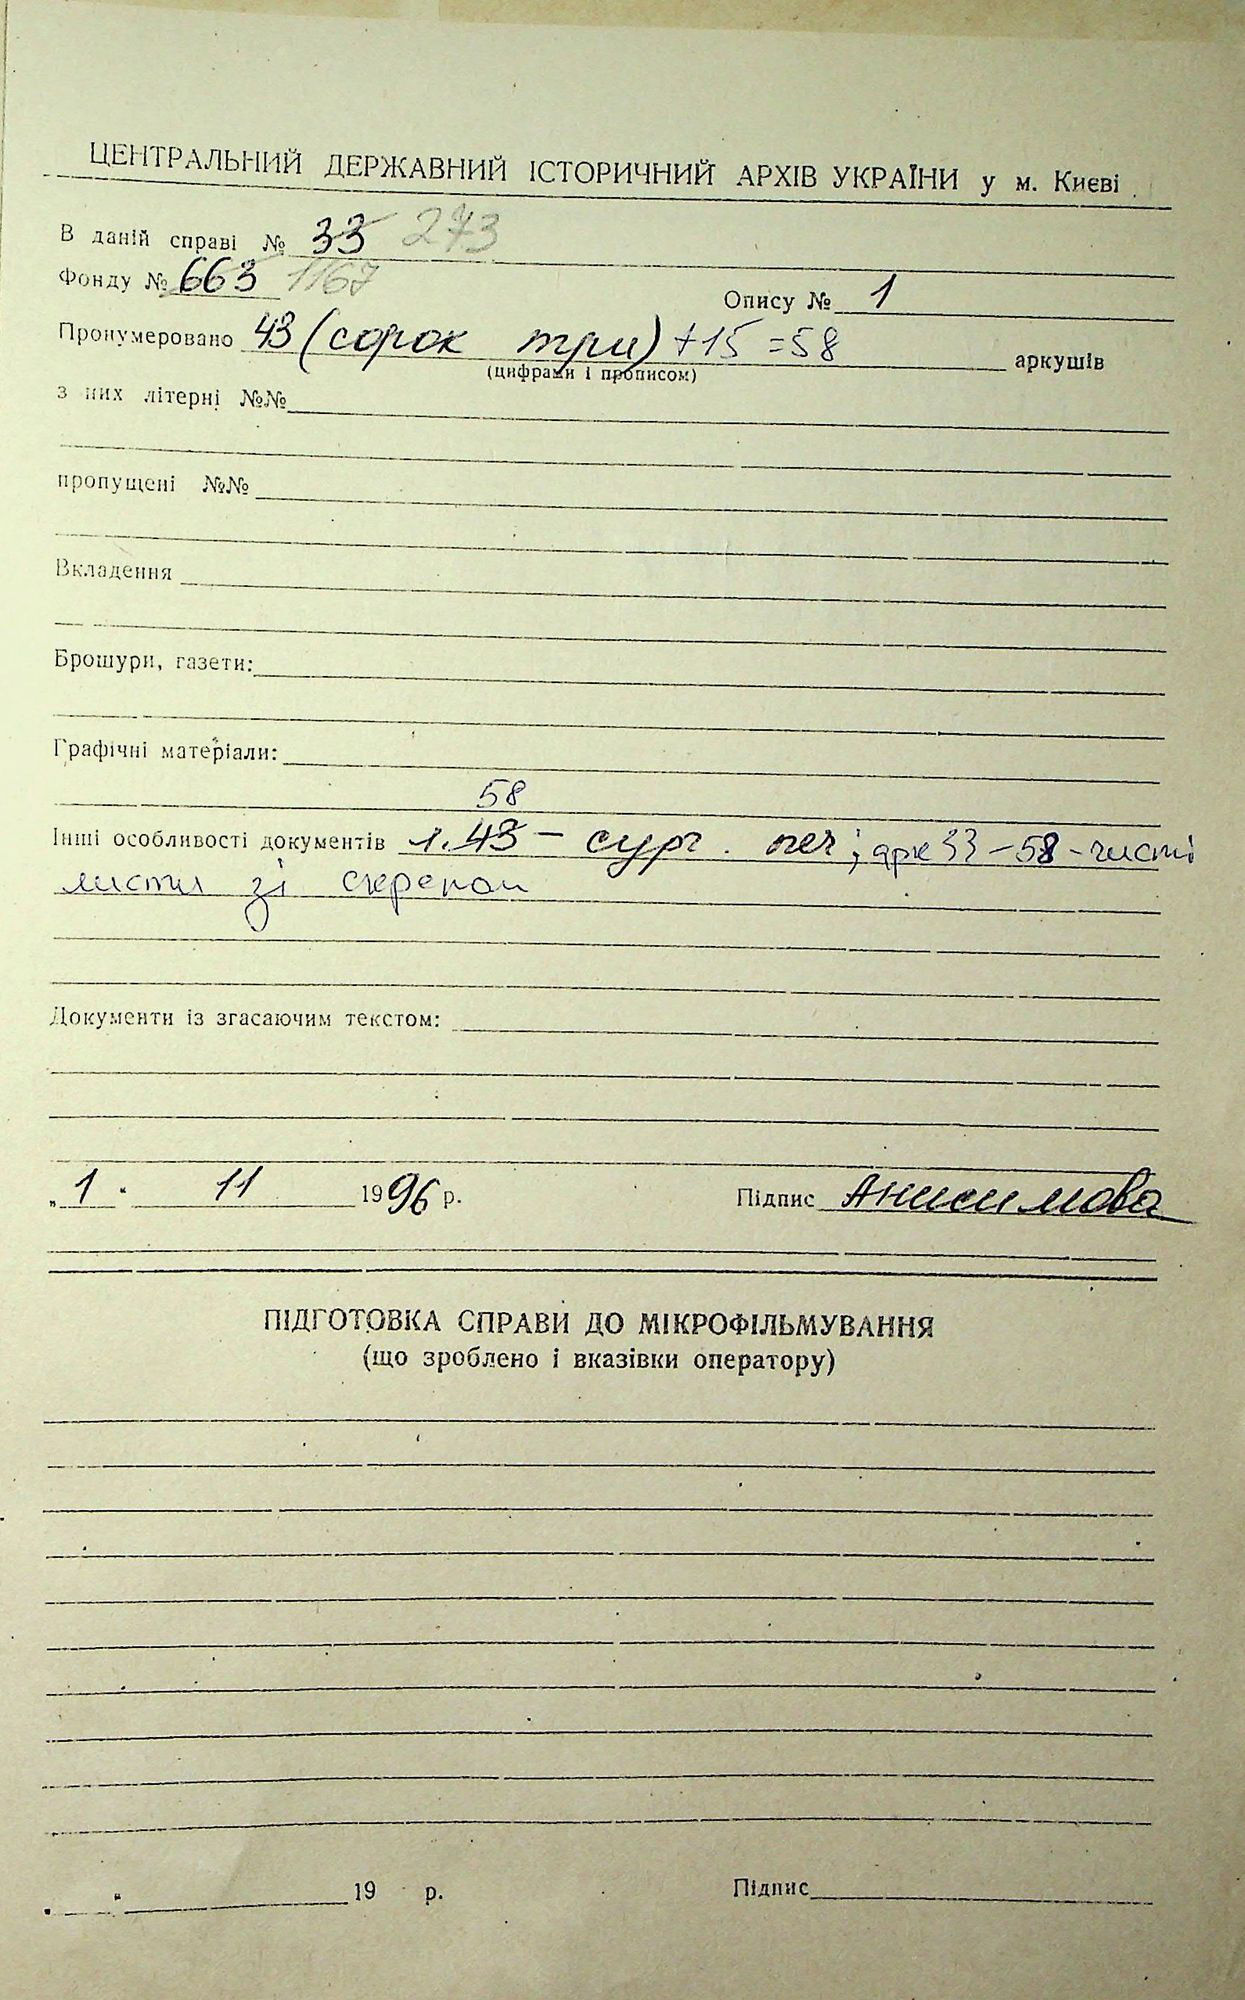 ЦЕНТРАЛЬНИЙ ДЕРЖАВНИЙ ІСТОРИЧНИЙ АРХІВ УКРАЇНИ у м. Києві
В даній справі № 33 273
Фонду № 663 1167
Опису № 1
Пронумеровано 43 (сорок три) +15 = 58 аркушів
(цифрами і прописом)
з них літерні №№
пропущені №№
Вкладення
Брошури, газети:
Графічні матеріали:
58
Інші особливості документів л. 43 – сург. печ; арк 33–58 – чисті
листи зі скрепой
Документи із згасаючим текстом:
„1“ 11 1996 р. Підпис Анисимова
ПІДГОТОВКА СПРАВИ ДО МІКРОФІЛЬМУВАННЯ
(що зроблено і вказівки оператору)
„ “ 19 р. Підпис